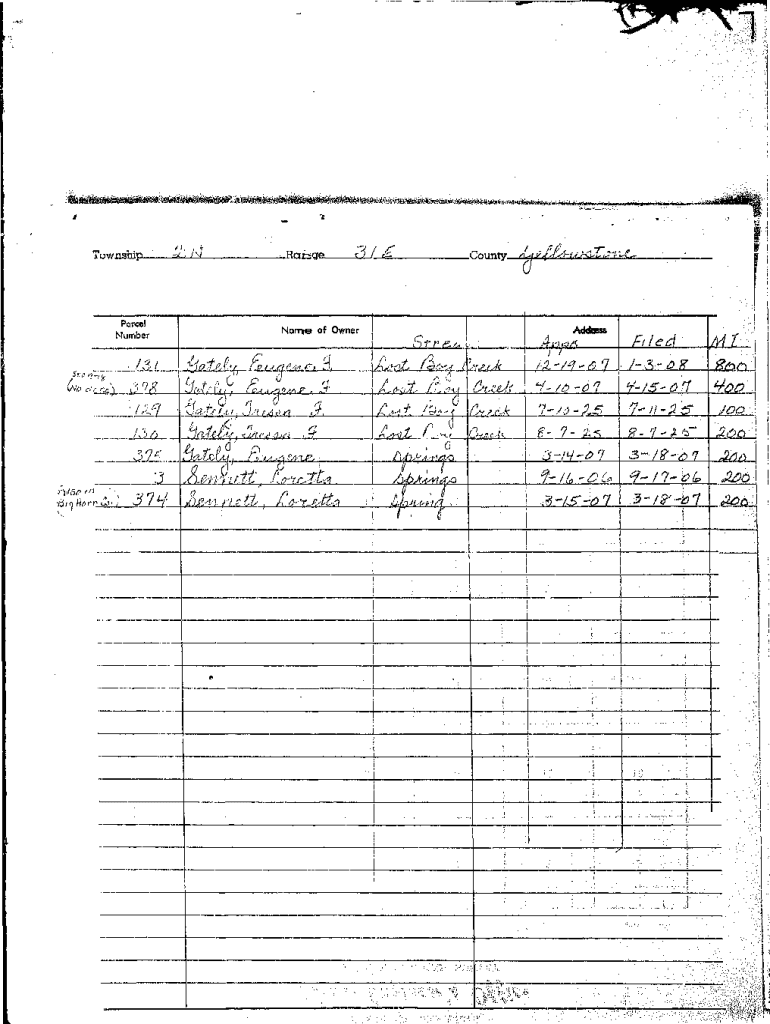 Township 2N Range 31E County Yellowstone
Parcel Number Name of Owner Stream Address Appo Filed MI
131 Gately, Eugene F. Lost Boy Creek 12-19-07 1-3-08 800
(No acres) 398 Gately, Eugene F Lost Boy Creek 4-10-07 4-15-07 400
129 Gately, F. Lost Boy Creek 7-10-25 7-11-25 100
130 Gately, F Lost Boy Creek 8-7-25 8-7-25 200
375 Gately, Eugene Springs 3-14-07 3-18-07 200
3 Sennett, Loretta Springs 9-16-06 9-17-06 200
Also in Big Horn Co. 374 Sennett, Loretta Spring 3-15-07 3-18-07 200